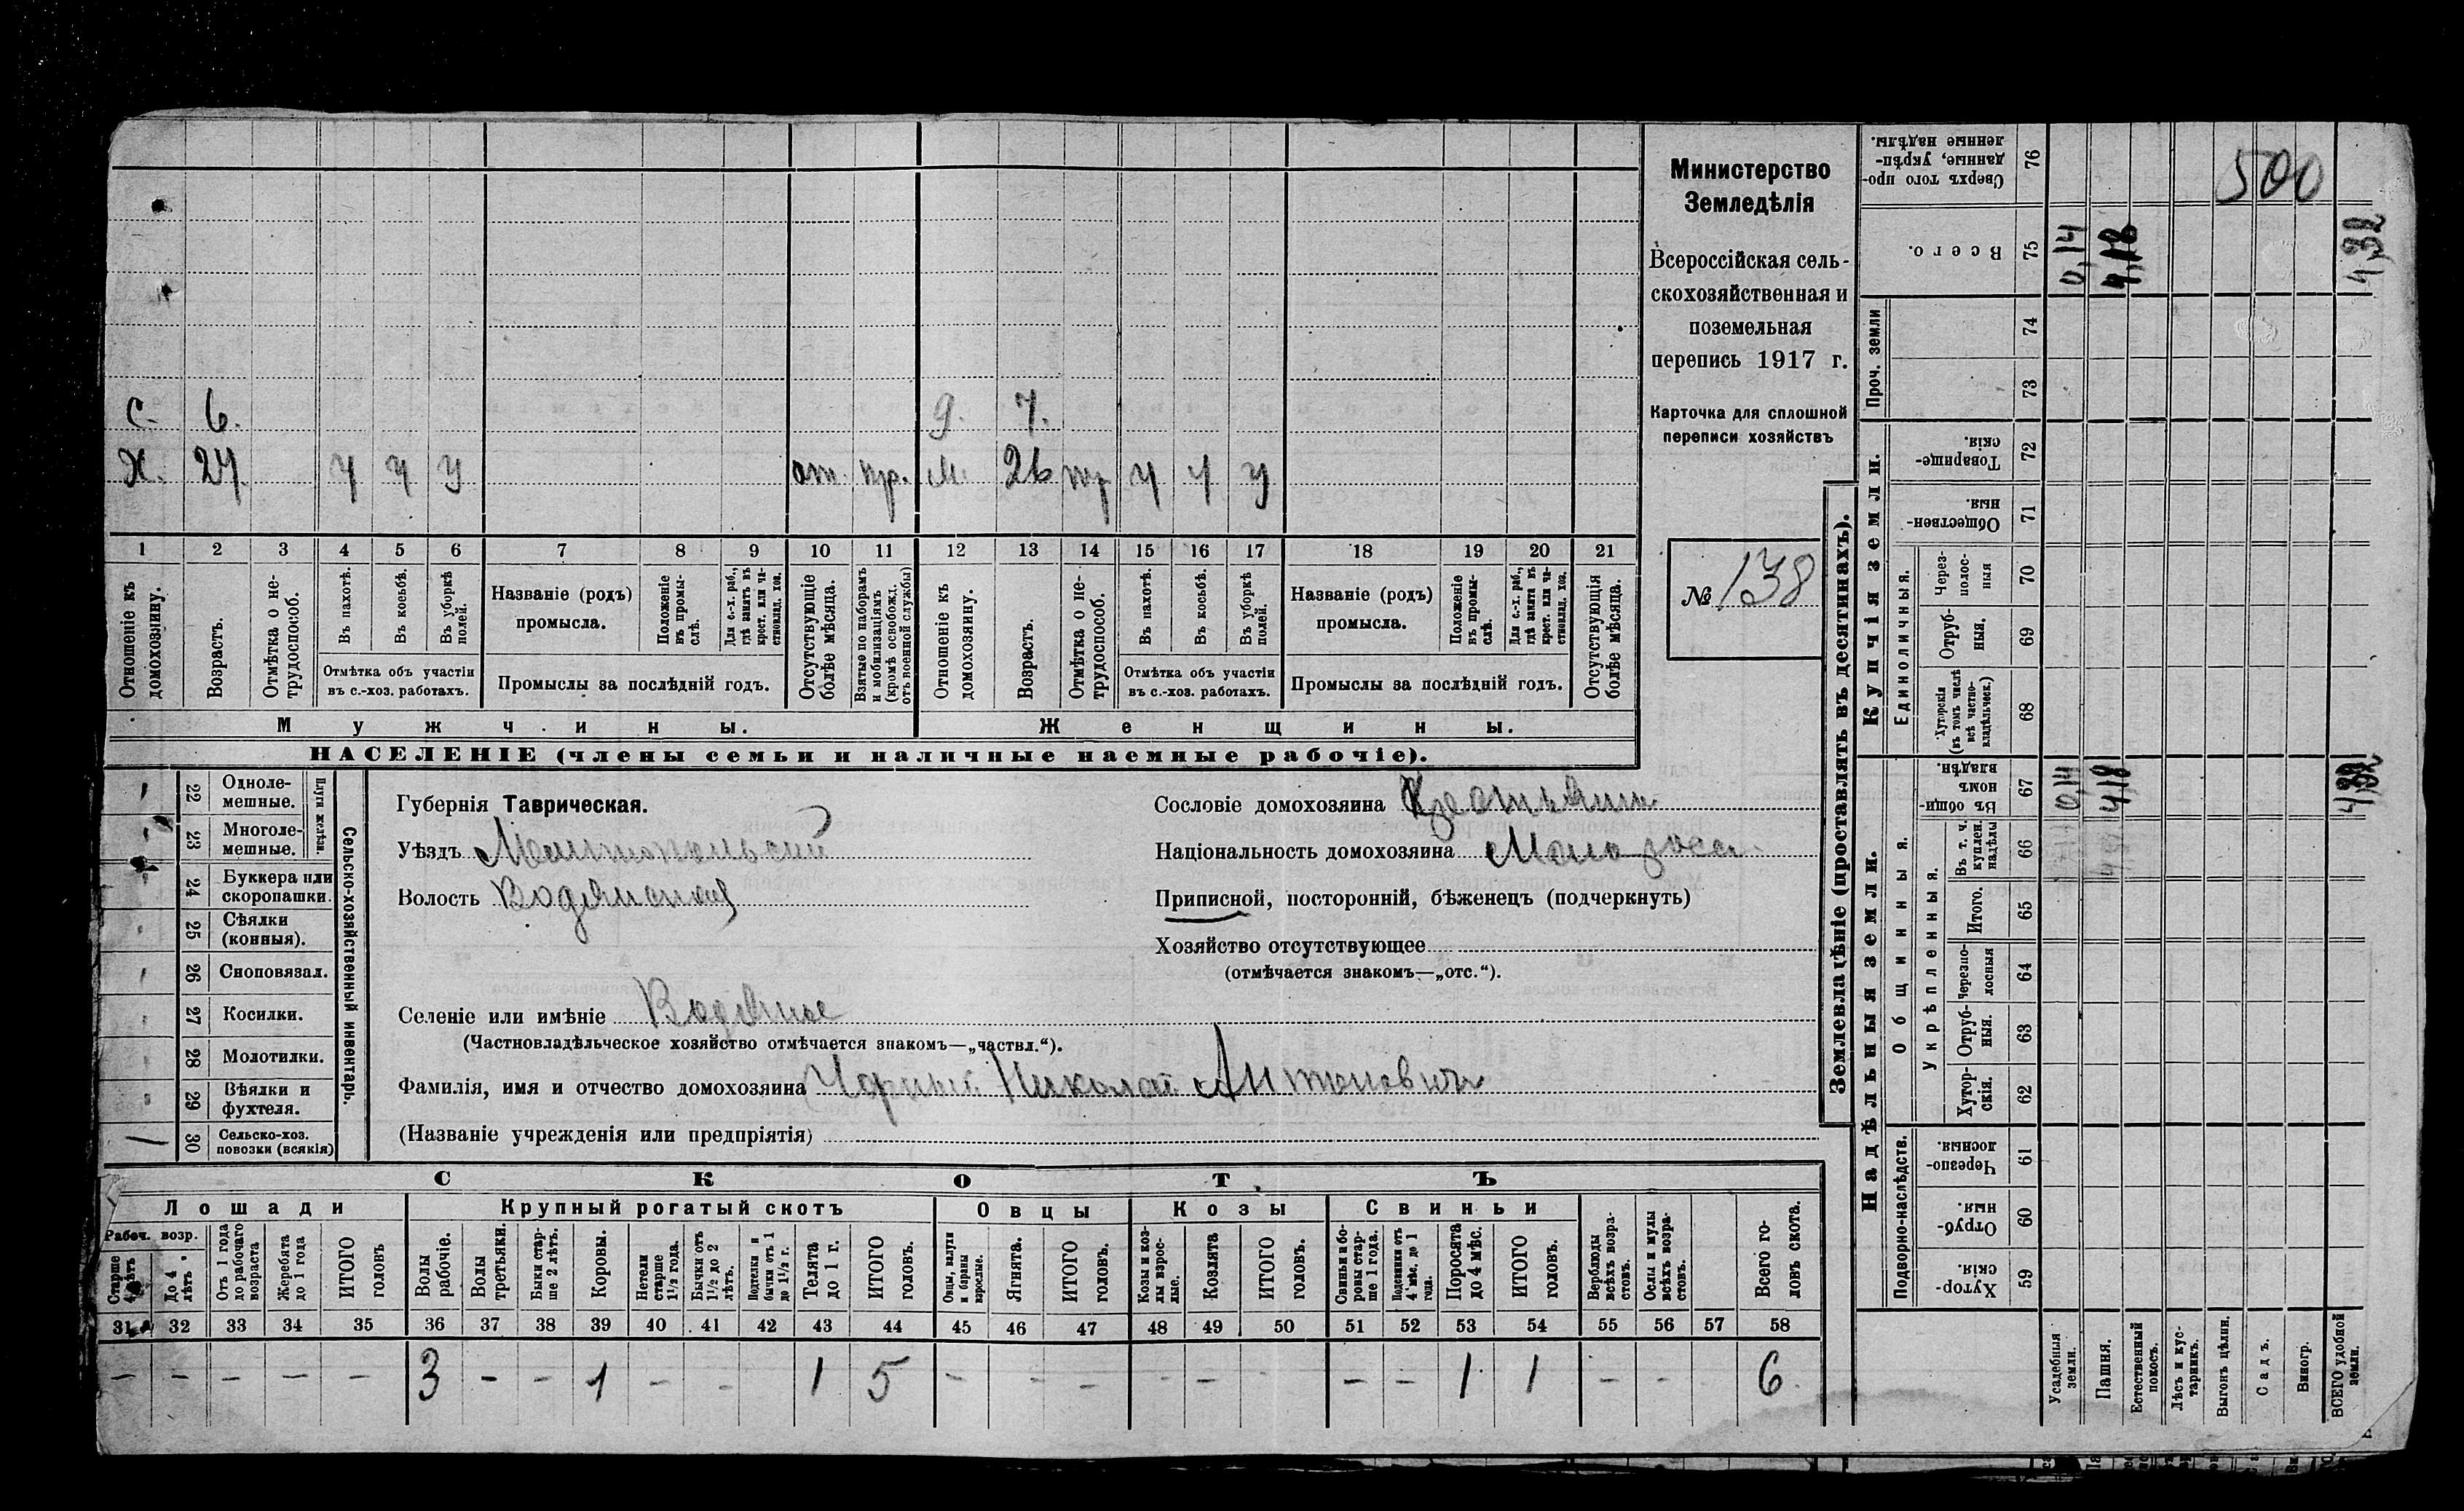 С. 6. д. 7.
Х. 27. у у у от. пр. м. 26 у у у
1 2 3 4 5 6 7 8 9 10 11 12 13 14 15 16 17 18 19 20 21
Отношеніе къ домохозяину.
Возрастъ.
Отмѣтка о не-
трудоспособ.
Въ пахотѣ.
Въ косьбѣ.
Въ уборкѣ полей.
Отмѣтка объ участіи
въ с.-хоз. работахъ.
Названіе (родъ)
промысла.
Положеніе въ промы-
слѣ.
Для с.-х. раб.,
гдѣ занятъ въ
крест. или ча-
стновлад. хоз.
Промыслы за послѣдній годъ.
Отсутствующіе
болѣе мѣсяца.
Взятые по наборамъ
и мобилизаціямъ
(кромѣ освобожд.
отъ военной службы)
Отношеніе къ
домохозяину.
Возрастъ.
Отмѣтка о не-
трудоспособ.
Въ пахотѣ.
Въ косьбѣ.
Въ уборкѣ
полей.
Отмѣтка объ участіи
въ с.-хоз. работахъ.
Названіе (родъ)
промысла.
Положеніе
въ промы-
слѣ.
Для с.-х. раб.,
гдѣ занята въ
крест. или ча-
стновлад. хоз.
Промыслы за послѣдній годъ.
Отсутствующія
болѣе мѣсяца.
Мужчины.
Женщины.
НАСЕЛЕНІЕ (члены семьи и наличные наемные рабочіе).
Министерство
Земледѣлія
Всероссійская сель-
скохозяйственная и
поземельная
перепись 1917 г.
Карточка для сплошной
переписи хозяйствъ
№ 138
22 Однолемешные.
23 Многолемешные.
Плуги желѣзн.
24 Буккера или
скоропашки.
25 Сѣялки
(конныя).
26 Сноповязал.
27 Косилки.
28 Молотилки.
29 Вѣялки и
фухтеля.
30 Сельско-хоз.
повозки (всякія)
Сельско-хозяйственный инвентарь.
Губернія Таврическая.
Уѣздъ Мелитопольский
Волость Водянская
Селеніе или имѣніе Водяное
(Частновладѣльческое хозяйство отмѣчается знакомъ—„частвл.“).
Фамилія, имя и отчество домохозяина Чорный Николай Антонович
(Названіе учрежденія или предпріятія)
Сословіе домохозяина Крестьянин
Національность домохозяина Малоросс.
Приписной, посторонній, бѣженецъ (подчеркнуть)
Хозяйство отсутствующее
(отмѣчается знакомъ—„отс.“).
СКОТЪ
Лошади
Крупный рогатый скотъ
Овцы
Козы
Свиньи
Рабоч. возр.
Старше 4 лѣтъ
До 4
лѣтъ
Отъ 1 года
до рабочаго
возраста
Жеребята
до 1 года
ИТОГО
головъ
Волы
рабочіе.
Волы
третьяки.
Быки стар-
ше 2 лѣтъ.
Коровы.
Нетели
старше
1½ года.
Бычки отъ
1½ до 2
лѣтъ.
Подтелки и
бычки отъ 1
до 1½ г.
Телята
до 1 г.
ИТОГО
головъ.
Овцы, валухи
и бараны
взрослые.
Ягнята.
ИТОГО
головъ.
Козы и коз-
лы взрос-
лые.
Козлята
ИТОГО
головъ.
Свиньи и бо-
ровы стар-
ше 1 года.
Подсвинки отъ
4 мѣс. до 1
года.
Поросята
до 4 мѣс.
ИТОГО
головъ.
Верблюды
всѣхъ возра-
стовъ.
Ослы и мулы
всѣхъ возра-
стовъ.
Всего го-
ловъ скота.
31 32 33 34 35 36 37 38 39 40 41 42 43 44 45 46 47 48 49 50 51 52 53 54 55 56 57 58
– – – – – 3 – – 1 – – 1 5 – – – – – – – 1 1 – – – 6
Землевладѣніе (проставлять въ десятинахъ).
Купчія земли.
Надѣльныя земли.
Сверхъ того про-
данные, укрѣп-
ленные надѣлы.
76
500
Всего.
75
0,14
4,18
4,32
Проч. земли
74
73
Товарище-
скія.
72
Обществен-
ныя.
71
Единоличныя.
Через-
полос-
ныя
70
Отруб-
ныя.
69
Хуторскія
(въ томъ числѣ
всѣ частно-
владѣльческ.)
68
Общинныя.
Въ общин-
номъ
владѣн.
67
0,14
4,18
4,32
Укрѣпленныя.
Въ т. ч.
куплен.
надѣлы
66
Итого.
65
Черезпо-
лосныя
64
Отруб-
ныя.
63
Хутор-
скія.
62
Подворно-наслѣдств.
Черезпо-
лосныя.
61
Отруб-
ныя.
60
Хутор-
скія.
59
Усадебныя
земли.
Пашня.
Естественный
покосъ.
Лѣсъ и кус-
тарникъ.
Выгонъ цѣлин.
Садъ.
Виногр.
ВСЕГО удобной
земли.